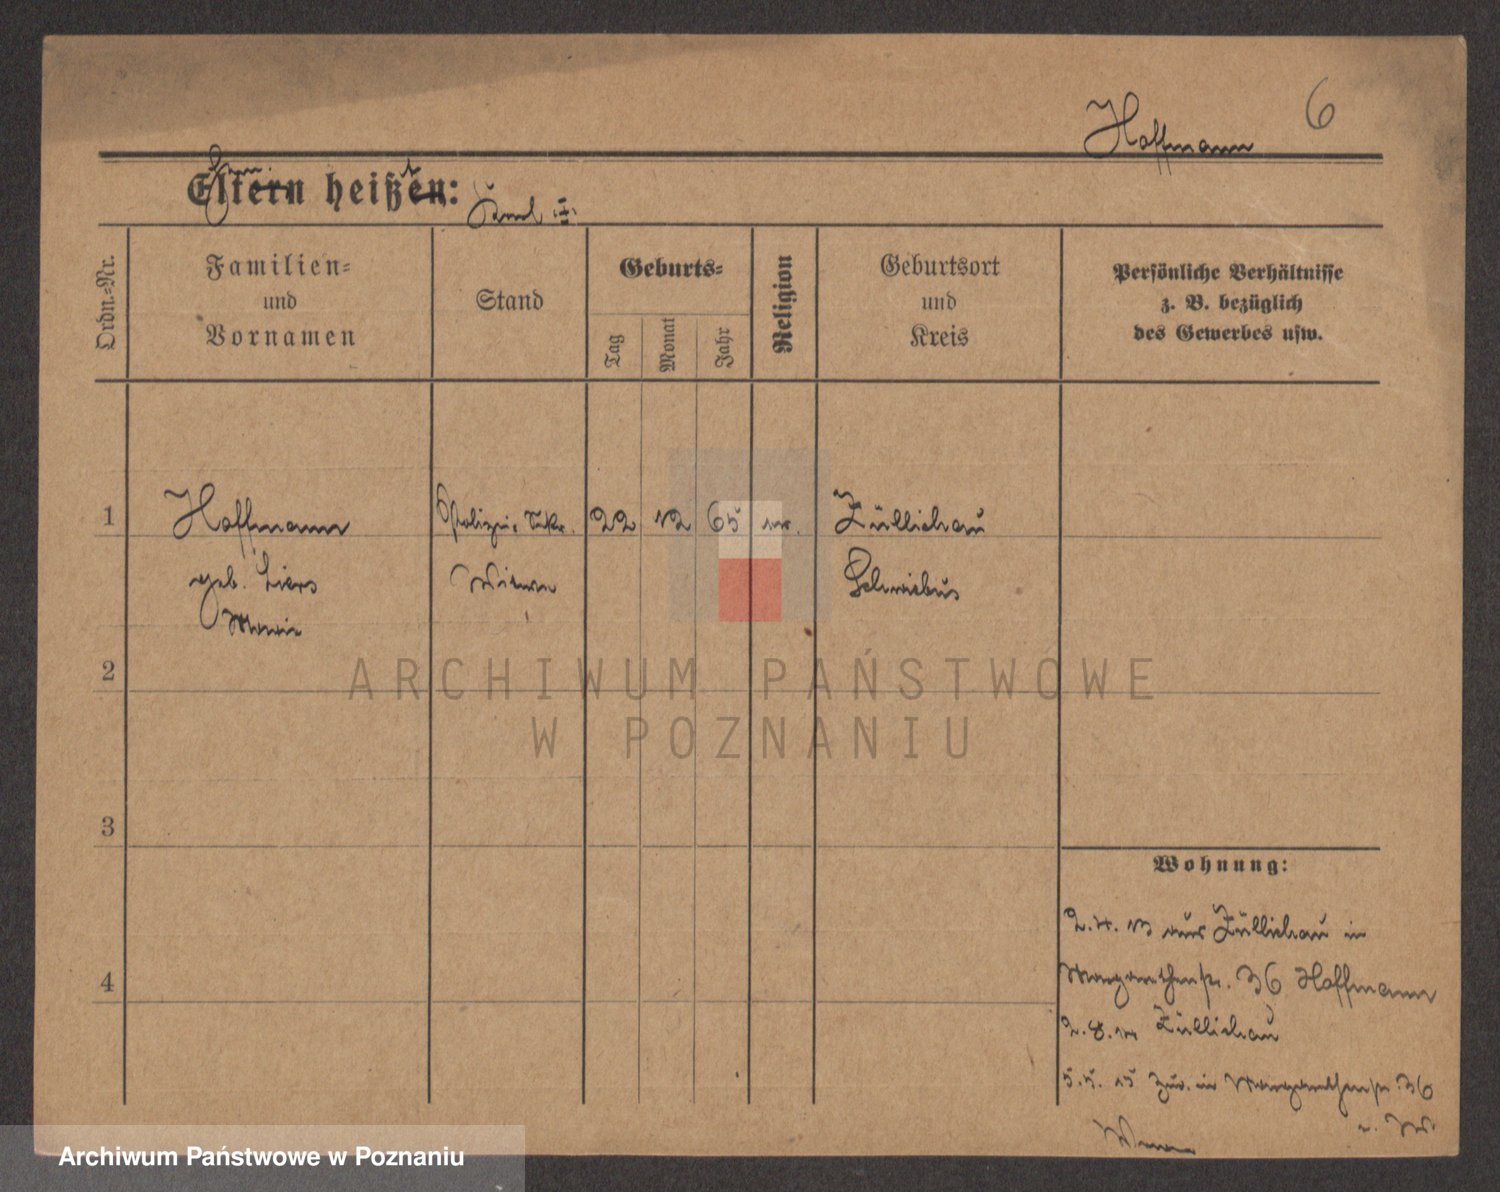 Hoffmann 6
Eltern heißen:
Ordn.-Nr.
Familien-
und
Vornamen
Stand
Geburts-
Tag
Monat
Jahr
Religion
Geburtsort
und
Kreis
Persönliche Verhältnisse
z. B. bezüglich
des Gewerbes usw.
1 Hoffmann 22 12 65 Züllichau
geb. Liers Witwe Schwiebus
Marie
2
ARCHIWUM PAŃSTWOWE
W POZNANIU
3
Wohnung:
2.4. 13 aus Züllichau in
4 Margarethenstr. 36 Hoffmann
2.8. Züllichau
5.5. 15 zur. in Margarethenstr. 36
Archiwum Państwowe w Poznaniu